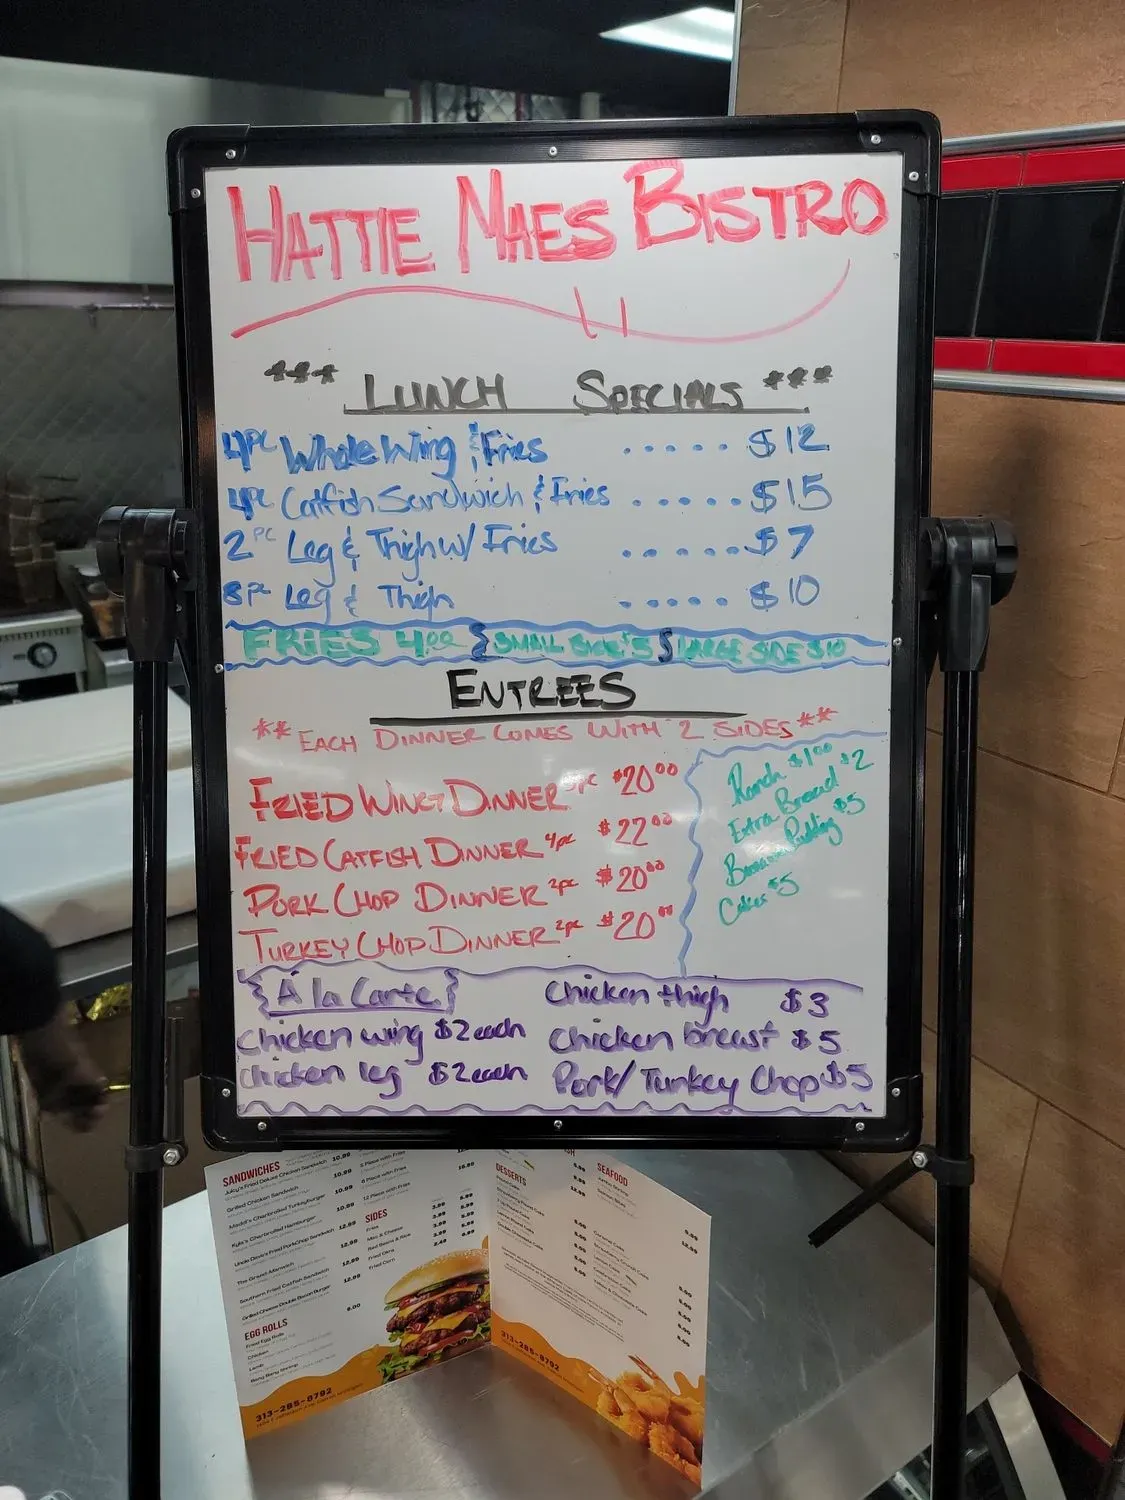 HATTIE MAES BISTRO
*** LUNCH SPECIALS ***
4PC Whole Wing & Fries ..... $12
4PC Catfish Sandwich & Fries ..... $15
2 PC Leg & Thigh w/ Fries ..... $7
8PC Leg & Thigh ..... $10
FRIES 4.00 SMALL SIDE $5 LARGE SIDE $10
ENTREES
** EACH DINNER COMES WITH 2 SIDES **
FRIED WING DINNER PC $20.00
FRIED CATFISH DINNER 4PC $22.00
PORK CHOP DINNER 2PC $20.00
TURKEY CHOP DINNER 2PC $20.00
Ranch $1.00
Extra Bread $2
Banana Pudding $5
Cakes $5
A la Carte
Chicken wing $2 each
Chicken leg $2 each
Chicken thigh $3
Chicken breast $5
Pork/Turkey Chop $5
SANDWICHES
Juicy's Fried Deluxe Chicken Sandwich 10.99
Grilled Chicken Sandwich 10.99
Madd's Charbroiled Turkeyburger 10.99
Kyle's Charbroiled Hamburger 10.99
Uncle Dave's Fried PorkChop Sandwich 12.99
The Grand Manwich 12.99
Southern Fried Catfish Sandwich 12.99
Grilled Cheese Double Bacon Burger 12.99
EGG ROLLS 6.00
Fried Egg Rolls
Chicken
Lamb
Bang Bang Shrimp
313-285-8792
5 Piece with Fries
6 Piece with Fries
12 Piece with Fries
SIDES
Fries
Mac & Cheese
Red Beans & Rice
Fried Okra
Fried Corn
DESSERTS
313-285-8792
SEAFOOD
Jumbo Shrimp
Caramel Cake